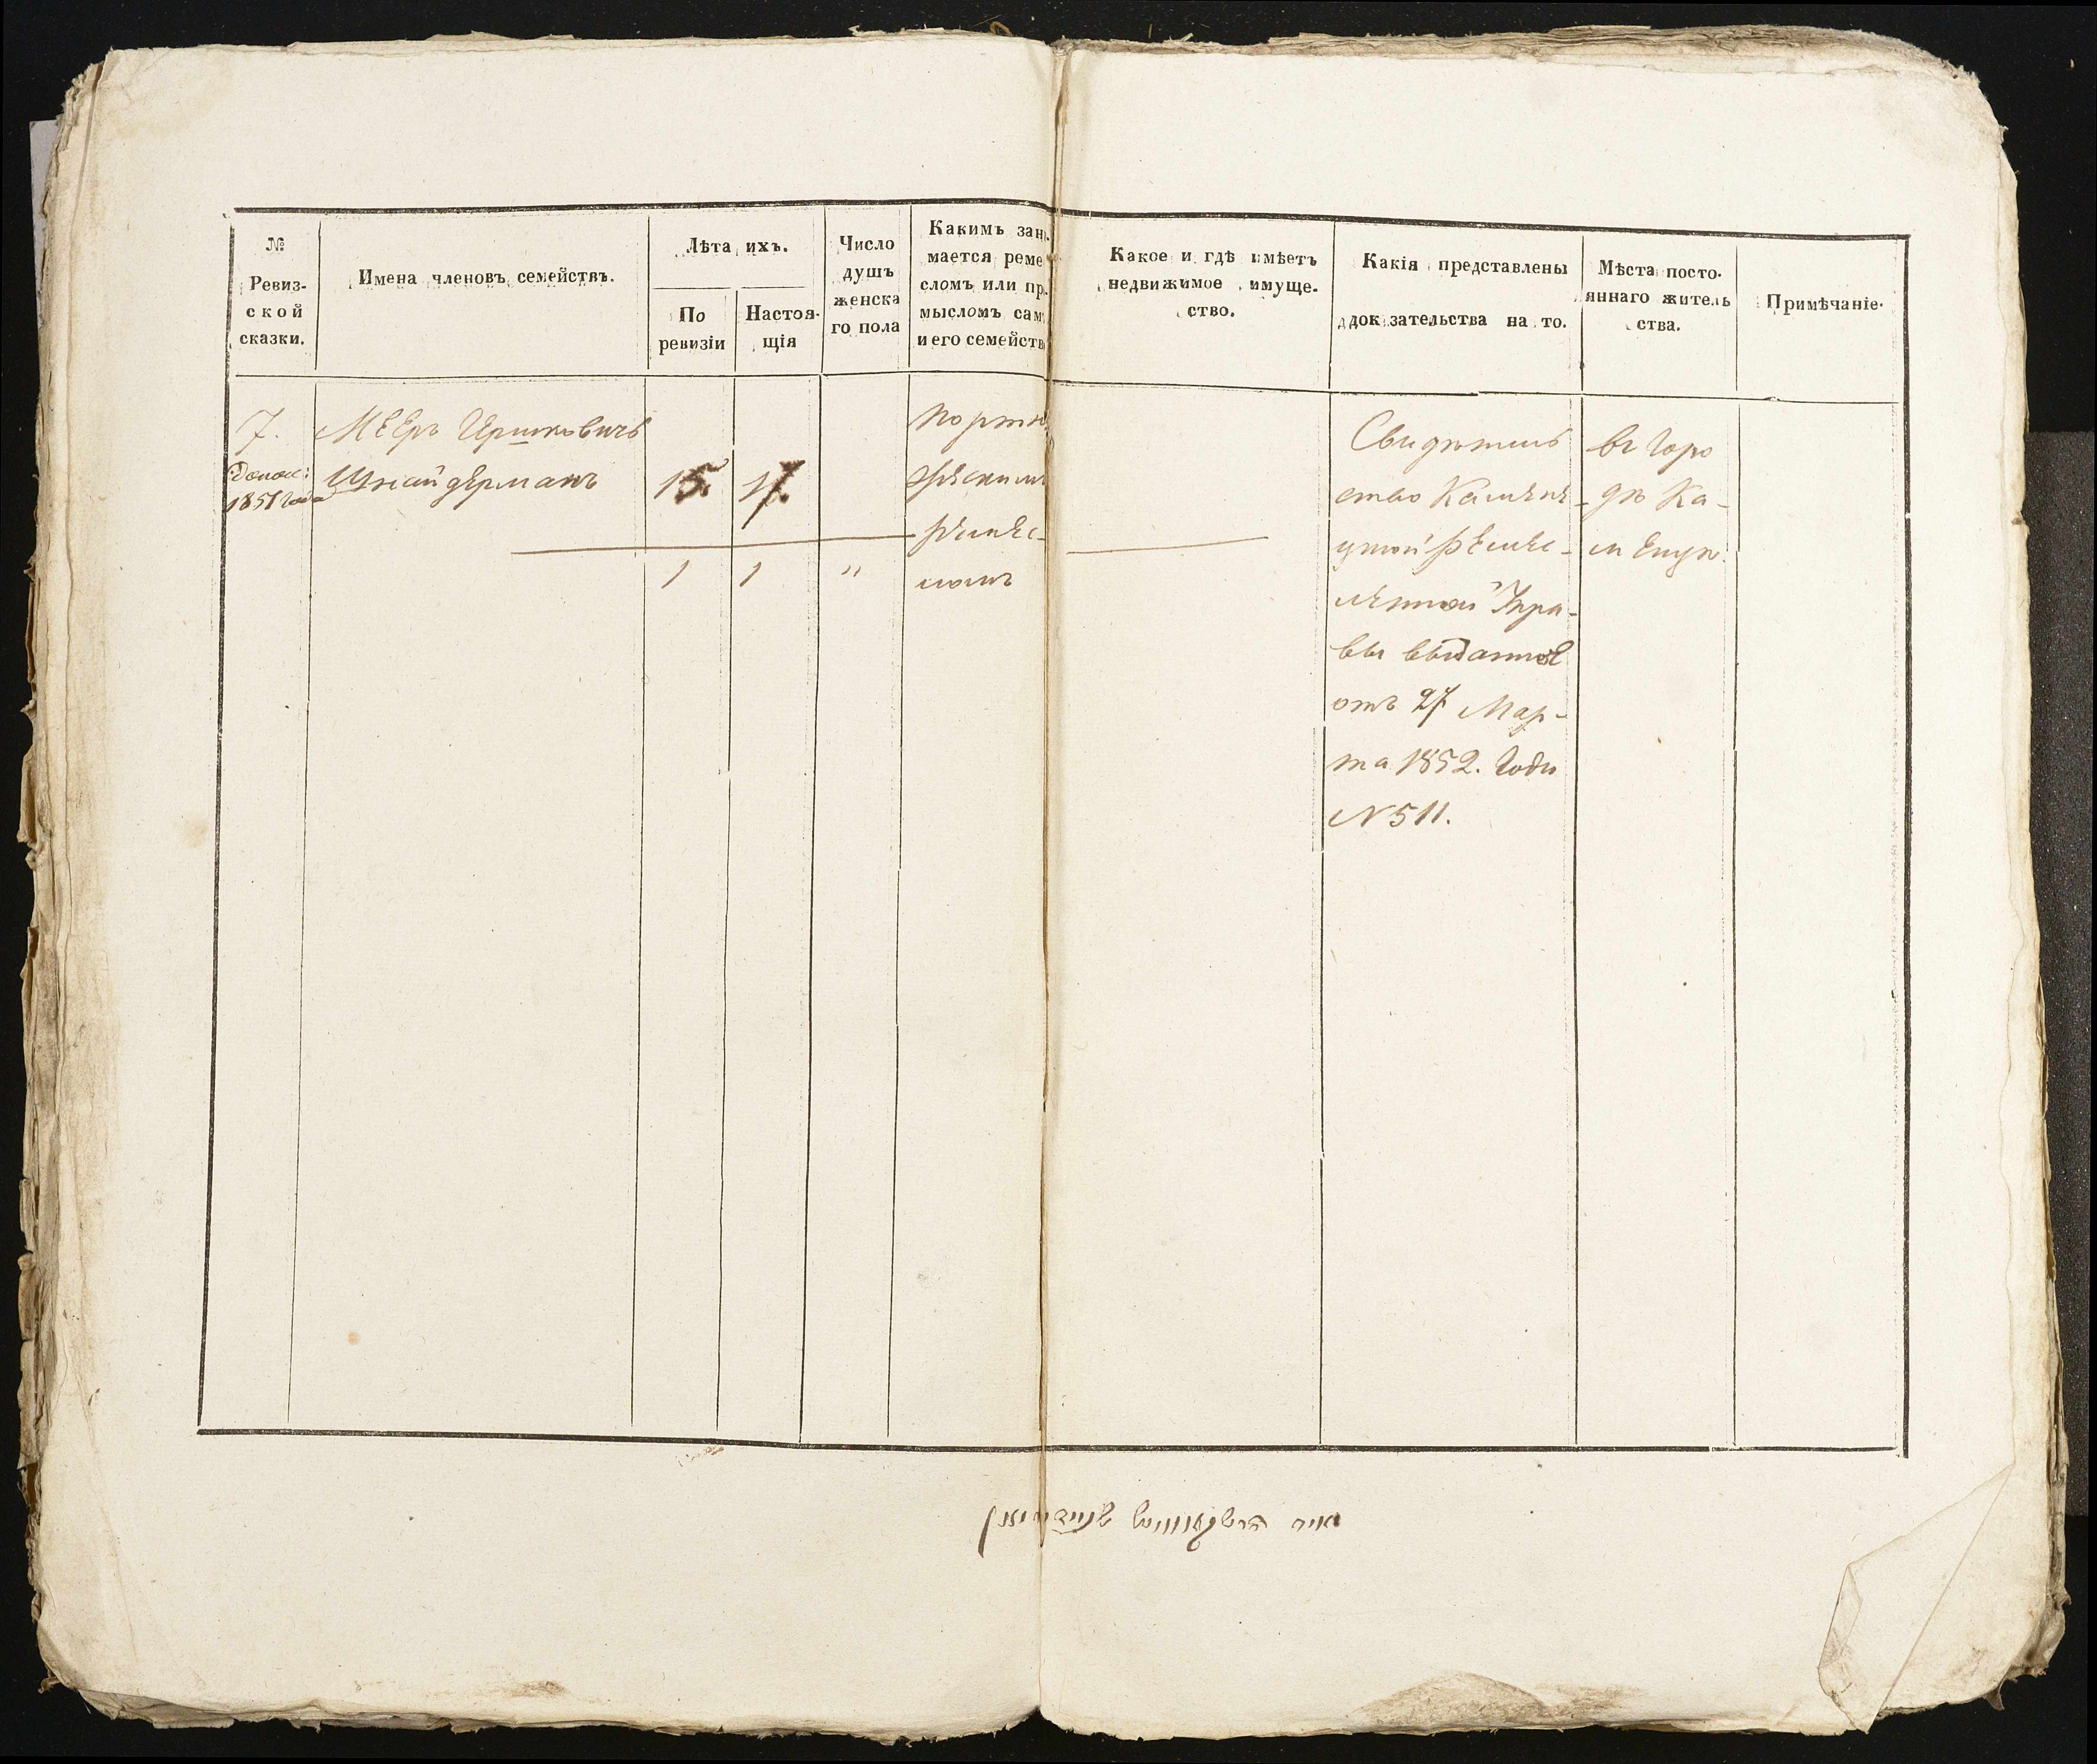 №
Ревиз-
ской
сказки.
Имена членовъ семействъ.
Лѣта ихъ.
По
ревизіи
Настоя-
щія
Число
душъ
женска
го пола
Какимъ зани-
мается реме
сломъ или пр.
мысломъ самъ
и его семейств
Какое и гдѣ имѣетъ
недвижимое имуще-
ство.
Какія представлены
док зательства на то.
Мѣста посто-
яннаго житель
ства.
Примѣчаніе.
7.
Допол:
1851 года
Мееръ Гершковичъ
Шнайдерманъ
15.
17.
1
1
"
портня
жескимъ
ремес-
ломъ
Свидѣтель
ство Камене
цкой Ремес-
ленной Упра-
вы выданное
отъ 27 Мар-
та 1852. Года
№ 511.
въ горо
дѣ Ка-
менцѣ.
מאיר הרשקאוויטש שניידרמאן